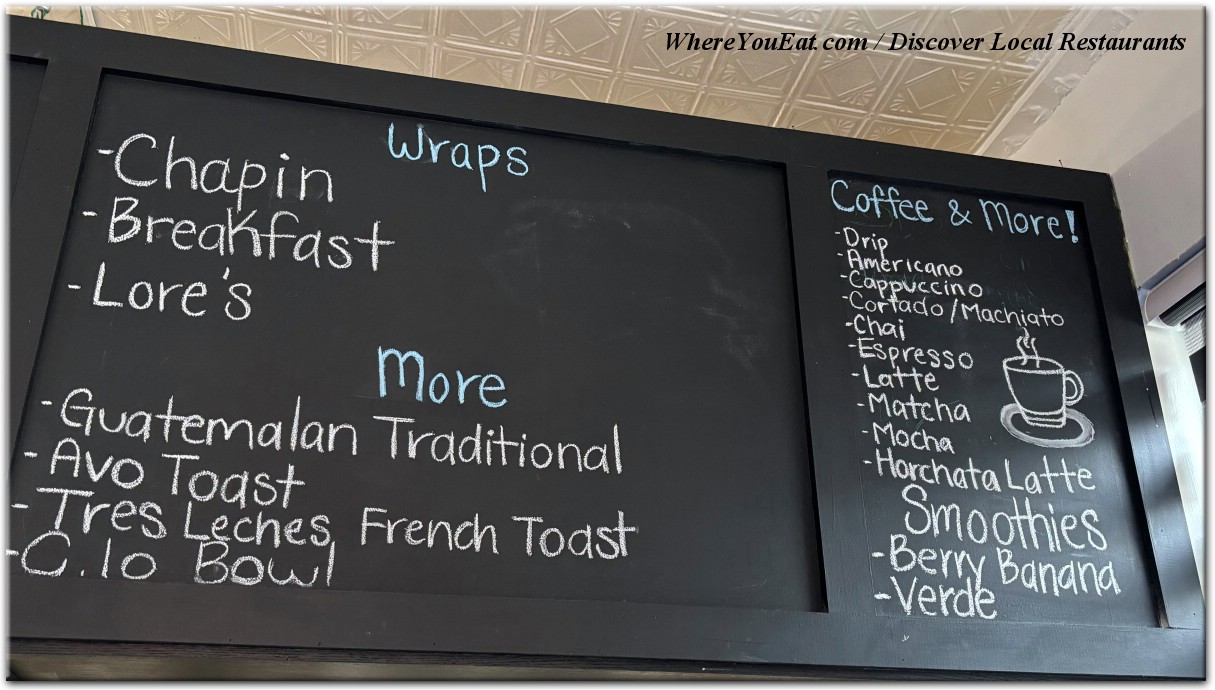 WhereYouEat.com / Discover Local Restaurants
Wraps
-Chapin
-Breakfast
-Lore's
More
-Guatemalan Traditional
-Avo Toast
-Tres Leches French Toast
-C.lo Bowl
Coffee & More!
-Drip
-Americano
-Cappuccino
-Cortado/Machiato
-Chai
-Espresso
-Latte
-Matcha
-Mocha
-Horchata Latte
Smoothies
-Berry Banana
-Verde